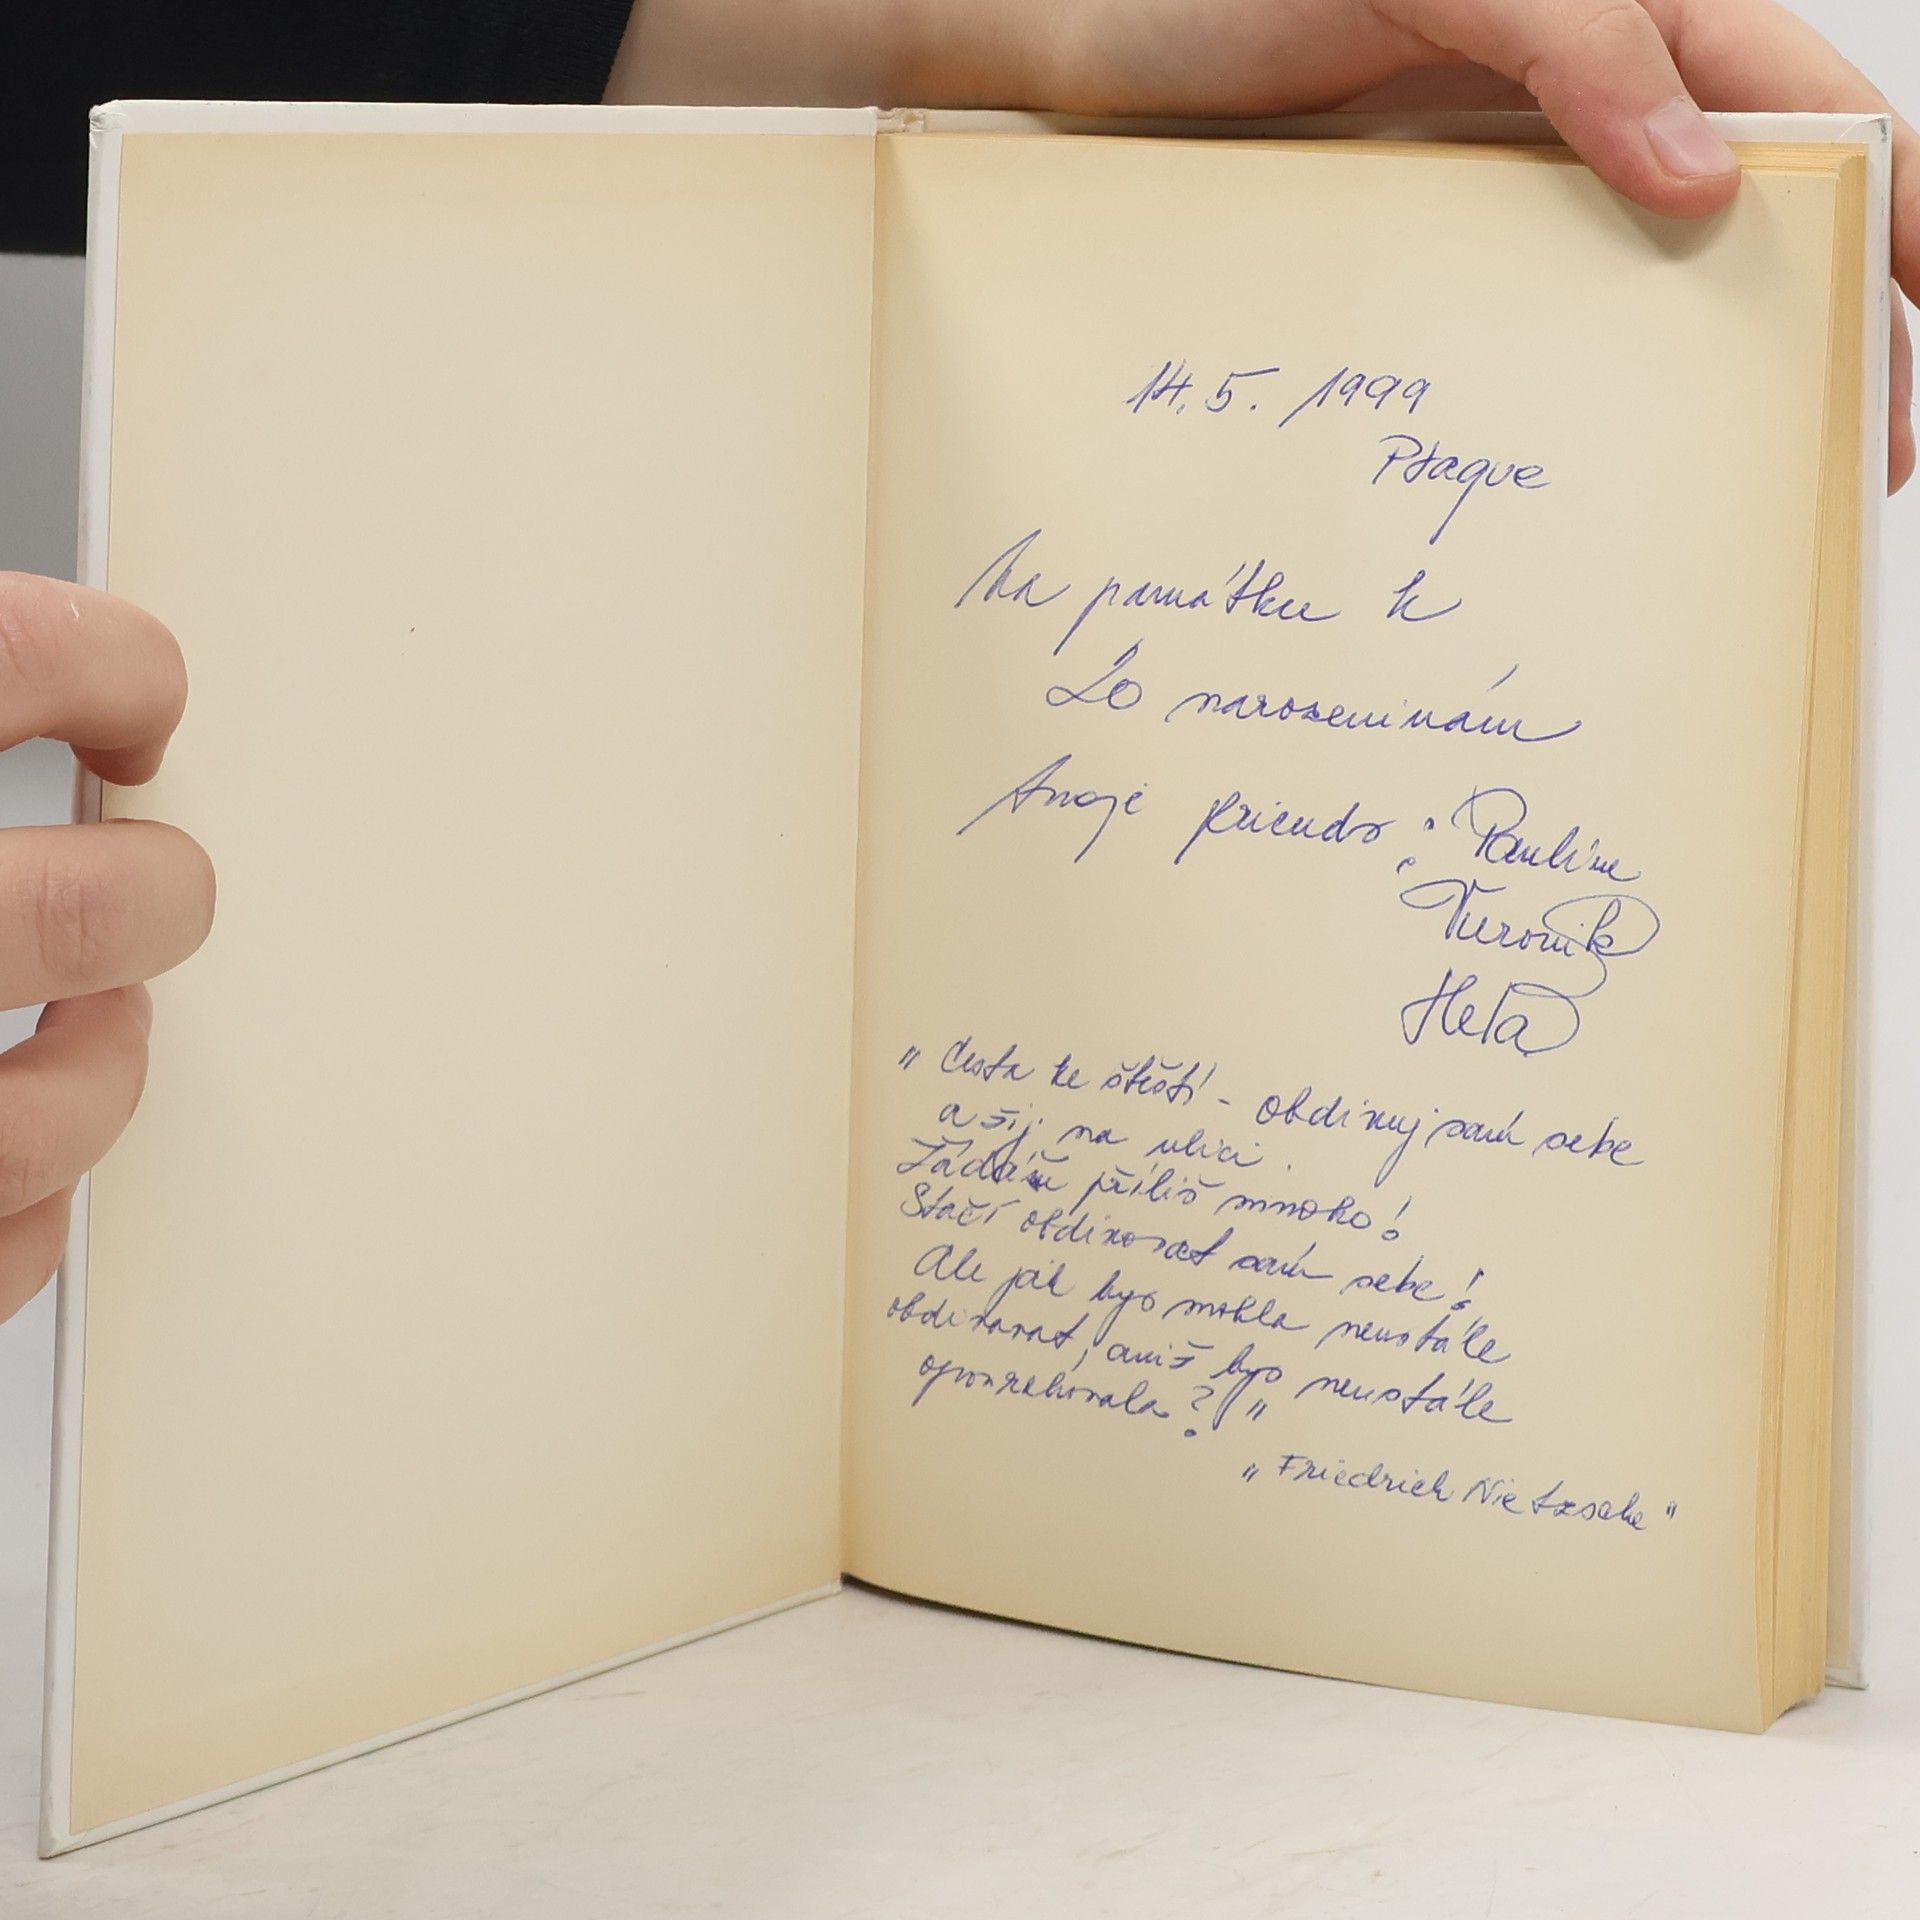 14. 5. 1999
Prague
Na památku k
20 narozeninám
tvoje friends : Pauline
Veronik
Heła
„ Cesta ke štěstí - obdivuj sám sebe
a žij na ulici.
Žádám příliš mnoho!
Stačí obdivovat sám sebe!
Ale jak bys mohla neustále
obdivovat, aniž bys neustále
opovrhovala? "
„ Friedrich Nietzsche "